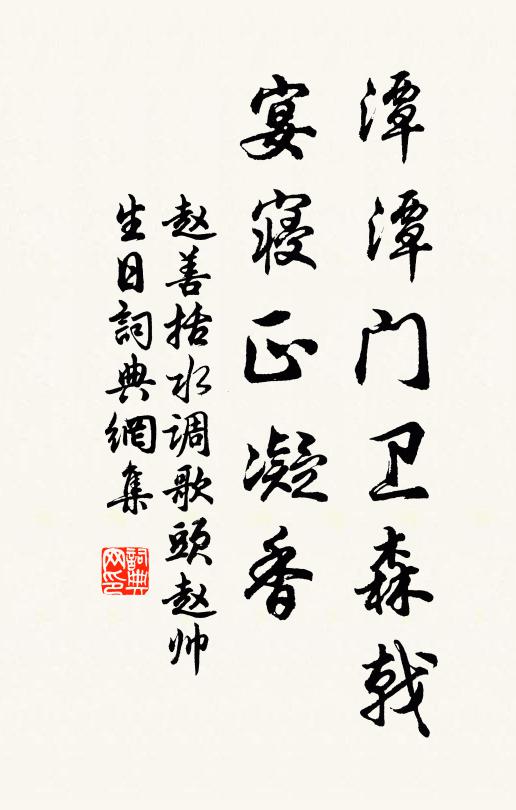 潭潭门卫森戟
宴寝正凝香
赵善括水调歌头赵帅
生日詞典網集
詞典网印